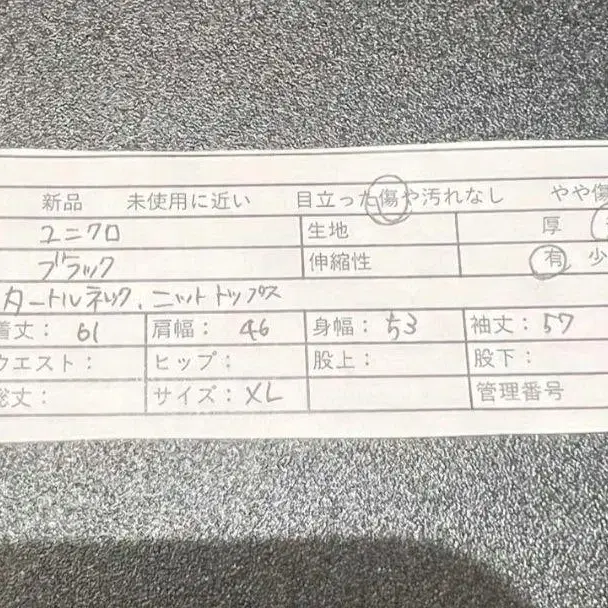 新品 未使用に近い 目立った傷や汚れなし やや傷
ユニクロ 生地 厚
ブラック 伸縮性 有 少
タートルネック、ニットトップス
着丈： 61 肩幅： 46 身幅： 53 袖丈： 57
ウエスト： ヒップ： 股上： 股下：
総丈： サイズ： XL 管理番号